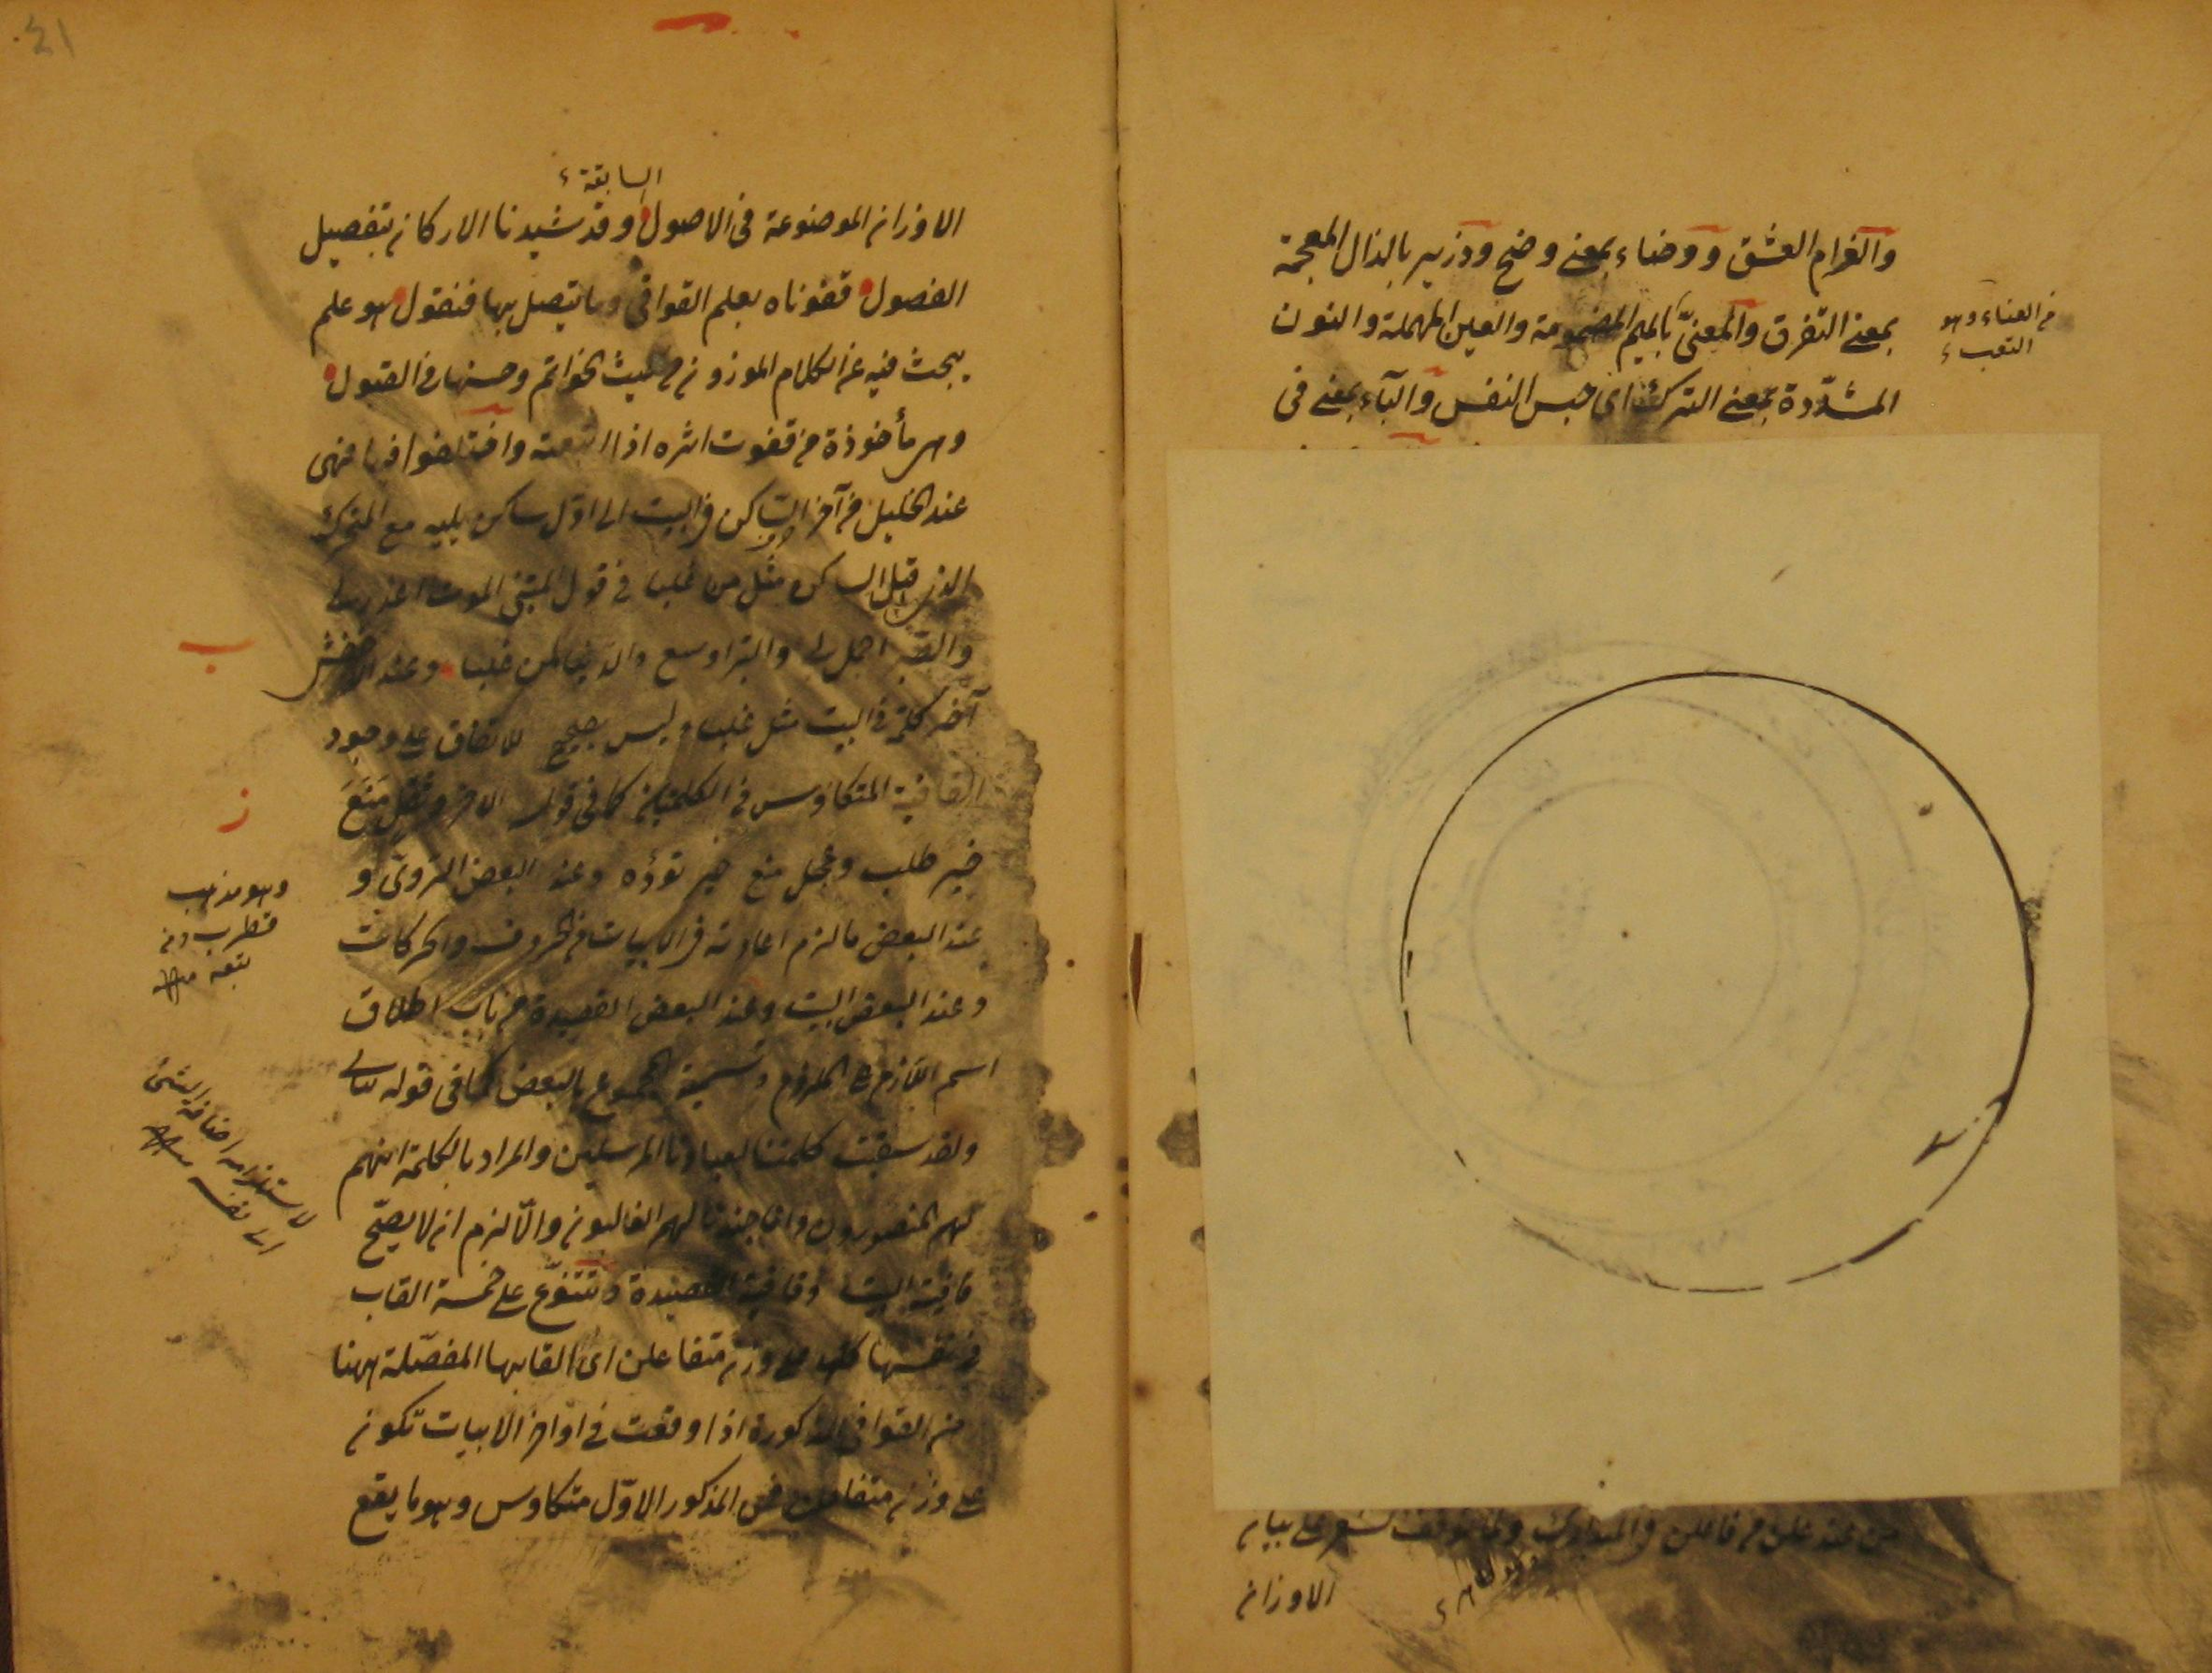 والغرام العشق ووضاء بمعنى وضح وذزير بالذال المعجمة
بمعنى التفرق والمعنّى بالميم المضمومة والعين المهملة والنون
المشدّدة بمعنى الترك اى حبس النفس والباء بمعنى فى
من العناء وهو
التعب
من فاعلن على بيان
الاوزان
٤١
السابقة
الاوزان الموضوعة فى الاصول وقد شيدنا الاركان بتفصيل
الفصول قفوناه بعلم القوافى وما يتصل بها فنقول هو علم
يبحث فيه عن الكلام الموزون من حيث الخواتم وحسنها فى القبول
وهى مأخوذة من قفوت اثره اذا اتبعته واختلفوا فيها فهى
عند الخليل من آخر الساكن فى البيت الى اوّل ساكن يليه مع المتحرك
الذى قبل الساكن مثل من غلبا فى قول المتنبى الموت اعذر لى
والصبر اجمل بى والبر اوسع والدنيا لمن غلبا وعند الاخفش
آخر كلمة فى البيت مثل غلبا وليس بصحيح للاتفاق على وجود
القافية المتكاوس فى الكلمتين كما فى قول الاخر وثقل منع
خير طلب وعجل منع خير تؤده وعند البعض الروىّ و
عند البعض ما لزم اعادته فى الابيات من الحروف والحركات
وعند البعض البيت وعند البعض القصيدة من باب اطلاق
اسم اللازم على الملزوم وتسمية المجموع بالبعض كما فى قوله تعالى
ولقد سبقت كلمتنا لعبادنا المرسلين والمراد بالكلمة انهم
لهم المنصورون وان جندنا لهم الغالبون والّا لزم ان لا يصحّ
قافية البيت وقافية القصيدة وتتنوّع على خمسة القاب
فى نفسها كلها على وزن متفاعلن اى القابها المفصّلة ههنا
من القوافى المذكورة اذا وقعت فى اواخر الابيات تكون
على وزن متفاعلن فمن المذكور الاوّل متكاوس وهو ما يقع
ب
ز
وهو مذهب
قطرب ومن
تبعه
لاستلزامه اضافة الشئ
الى نفسه